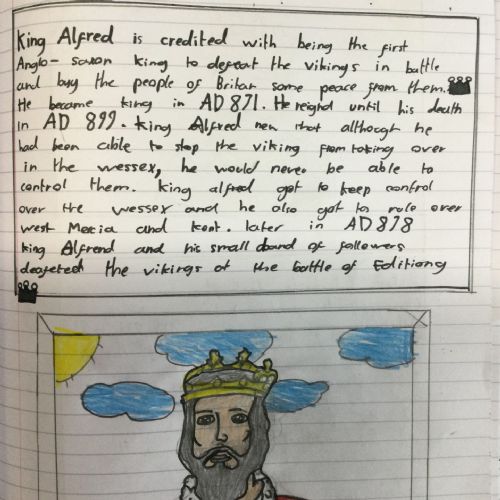 King Alfred is credited with being the first
Anglo-saxon king to defeat the vikings in battle
and buy the people of Britan some peace from them.
He became king in AD 871. He reignd until his death
in AD 899. King Alfred new that although he
had been able to stop the viking from taking over
in the wessex, he would never be able to
control them. King alfred got to keep control
over the wessex and he also got to rule over
west Mercia and kent. later in AD 878
king Alfrend and his small band of followers
deafeted the vikings at the battle of Editiong